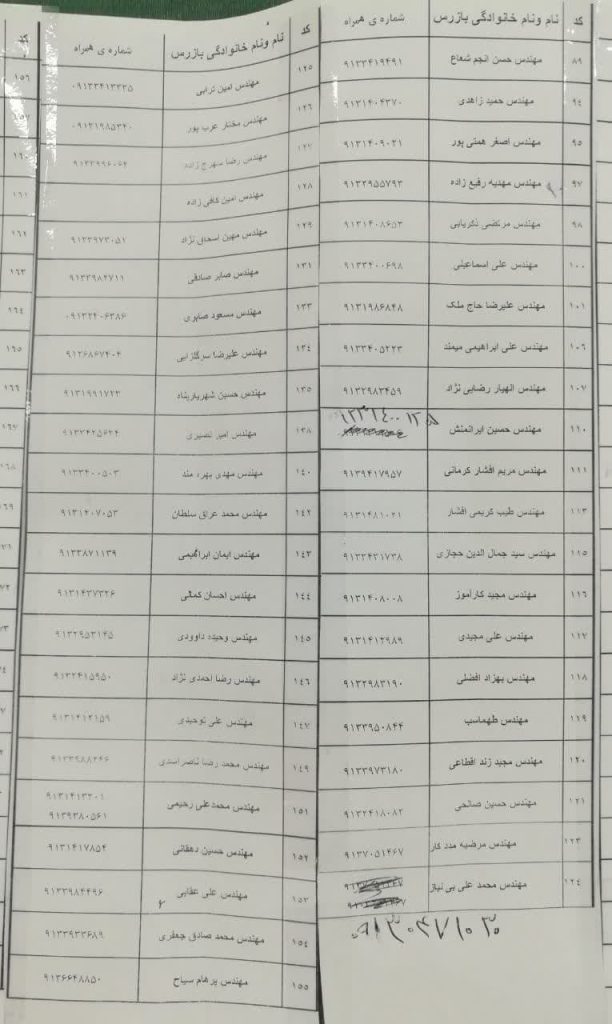 کد نام ونام خانوادگی بازرس شماره ی همراه
۸۹ مهندس حسن انجم شعاع ۹۱۳۳۴۱۹۴۹۱
۹۴ مهندس حمید زاهدی ۹۱۳۱۴۰۴۳۷۰
۹۵ مهندس اصغر همتی پور ۹۱۳۱۴۰۹۰۲۱
۹۷ مهندس مهدیه رفیع زاده ۹۱۳۲۹۵۵۷۹۳
۹۸ مهندس مرتضی ذکریایی ۹۱۳۱۴۰۸۶۵۳
۱۰۰ مهندس علی اسماعیلی ۹۱۳۳۴۰۰۶۹۸
۱۰۱ مهندس علیرضا حاج ملک ۹۱۳۱۹۸۶۸۴۸
۱۰۶ مهندس علی ابراهیمی میمند ۹۱۳۳۴۰۵۲۲۳
۱۰۷ مهندس الهیار رضایی نژاد ۹۱۳۲۹۸۳۴۵۹
۱۱۰ مهندس حسین ایرانمنش
۱۱۱ مهندس مریم افشار کرمانی ۹۱۳۹۴۱۷۹۵۷
۱۱۳ مهندس طیب کریمی افشار ۹۱۳۱۴۸۱۰۲۱
۱۱۵ مهندس سید جمال الدین حجازی ۹۱۳۳۴۳۱۷۳۸
۱۱۶ مهندس مجید کارآموز ۹۱۳۱۴۰۸۰۰۸
۱۱۷ مهندس علی مجیدی ۹۱۳۱۴۱۲۹۸۹
۱۱۸ مهندس بهزاد افضلی ۹۱۳۲۹۸۳۱۹۰
۱۱۹ مهندس طهماسب ۹۱۳۳۹۵۰۸۴۴
۱۲۰ مهندس مجید زند اقطاعی ۹۱۳۳۹۷۳۱۸۰
۱۲۱ مهندس حسین صالحی ۹۱۳۲۴۱۸۰۸۲
۱۲۳ مهندس مرضیه مدد کار ۹۱۳۷۰۵۱۴۶۷
۱۲۴ مهندس محمد علی بی نیاز
کد نام ونام خانوادگی بازرس شماره ی همراه
۱۲۵ مهندس امین ترابی ۰۹۱۳۳۴۱۳۳۳۵
۱۲۶ مهندس مختار عرب پور ۰۹۱۳۱۹۸۵۳۴۰
۱۲۷ مهندس رضا سهرج زاده
۱۲۸ مهندس امین کافی زاده
۱۲۹ مهندس مهین اسحاق نژاد ۹۱۳۳۹۷۳۰۵۱
۱۳۱ مهندس صابر صادقی ۹۱۳۳۹۸۲۷۱۱
۱۳۳ مهندس مسعود صابری ۰۹۱۳۲۴۰۶۳۸۶
۱۳۴ مهندس علیرضا سرگلزایی ۹۱۲۶۸۶۷۴۰۴
۱۳۵ مهندس حسین شهریارپناه ۹۱۳۱۹۹۱۷۲۳
۱۳۸ مهندس امیر نصیری ۹۱۳۳۴۲۵۶۲۴
۱۴۰ مهندس مهدی بهره مند ۹۱۳۳۴۰۰۵۰۳
۱۴۲ مهندس محمد عراق سلطان ۹۱۳۱۴۰۷۰۵۳
۱۴۳ مهندس ایمان ابراهیمی ۹۱۳۳۸۷۱۱۳۹
۱۴۴ مهندس احسان کمالی ۹۱۳۱۴۳۷۳۲۶
۱۴۵ مهندس وحیده داوودی ۹۱۳۲۹۵۳۱۴۵
۱۴۶ مهندس رضا احمدی نژاد ۹۱۳۲۴۱۵۹۵۰
۱۴۷ مهندس علی توحیدی ۹۱۳۱۴۱۲۱۵۹
۱۴۹ مهندس محمد رضا ناصر اسدی ۹۱۳۳۹۸۸۲۴۶
۱۵۱ مهندس محمدعلی رحیمی ۹۱۳۱۴۱۳۲۰۱
۹۱۳۹۳۸۰۵۶۱
۱۵۲ مهندس حسین دهقانی ۹۱۳۱۴۱۷۸۵۴
۱۵۳ مهندس علی عقابی ۹۱۳۳۹۸۴۴۹۶
۱۵۴ مهندس محمد صادق جعفری ۹۱۳۳۹۳۳۶۸۹
۱۵۵ مهندس پرهام سیاح ۹۱۳۶۶۴۸۸۵۰
کد
۱۵۶
۱۶۰
۱۶۱
۱۶۲
۱۶۳
۱۶۴
۱۶۵
۱۶۶
۱۶۷